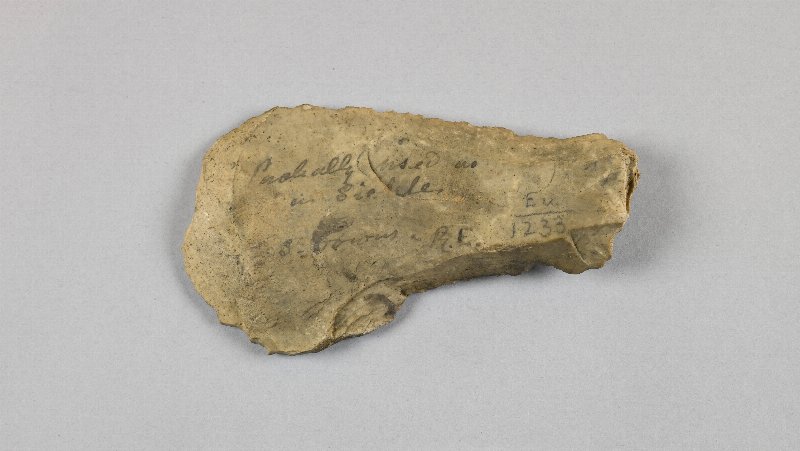 Probably used as
a Sickle
S. Downs R.E.
Ev.
1233